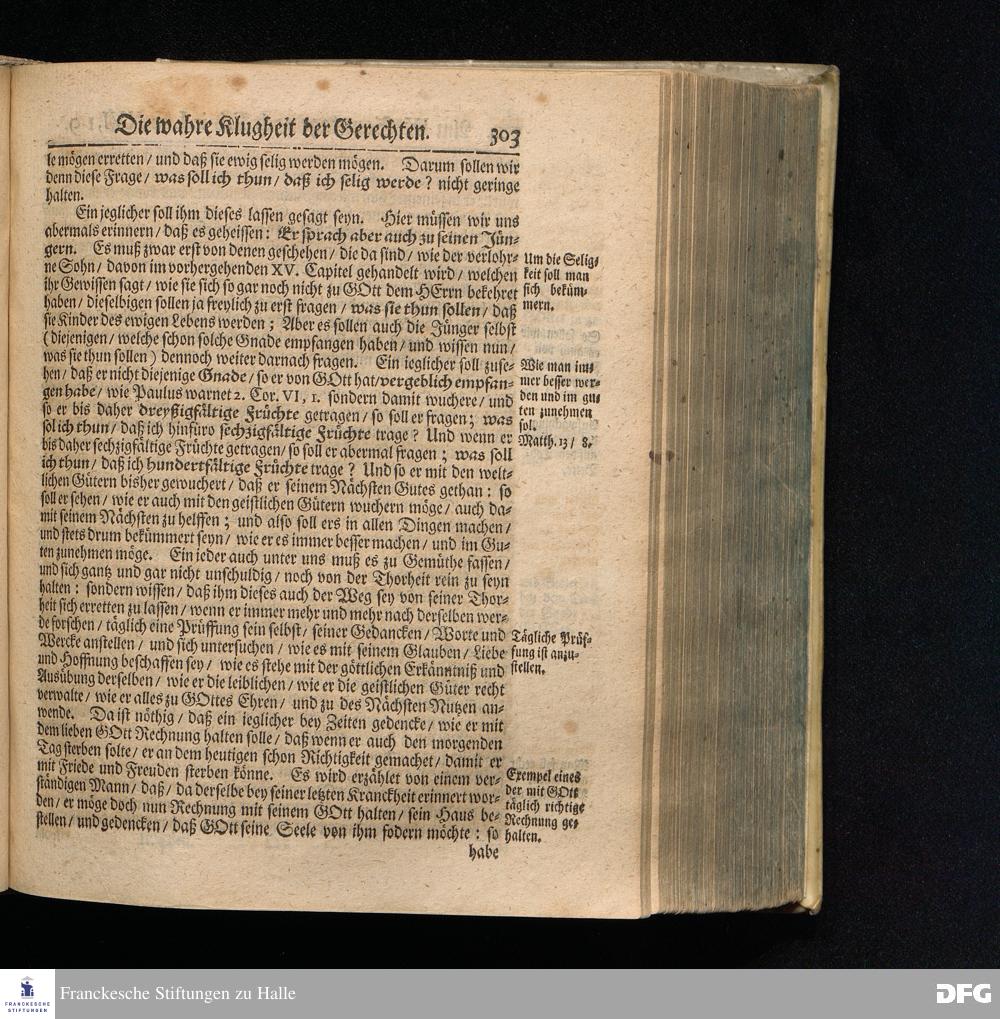 Die wahre Klugheit der Gerechten. 303
le mögen erretten / und daß sie ewig selig werden mögen. Darum sollen wir
denn diese Frage / was soll ich thun / daß ich selig werde? nicht geringe
halten.
Ein jeglicher soll ihm dieses lassen gesagt seyn. Hier müssen wir uns
abermals erinnern / daß es geheissen: Er sprach aber auch zu seinen Jün-
gern. Es muß zwar erst von denen geschehen / die da sind / wie der verlohr-
ne Sohn / davon im vorhergehenden XV. Capitel gehandelt wird / welchen
ihr Gewissen sagt / wie sie sich so gar noch nicht zu GOtt dem HErrn bekehret
haben / dieselbigen sollen ja freylich zu erst fragen / was sie thun sollen / daß
sie Kinder des ewigen Lebens werden; Aber es sollen auch die Jünger selbst
(diejenigen / welche schon solche Gnade empfangen haben / und wissen nun /
was sie thun sollen) dennoch weiter darnach fragen. Ein jeglicher soll zuse-
hen / daß er nicht diejenige Gnade / so er von GOtt hat / vergeblich empfan-
gen habe / wie Paulus warnet 2. Cor. VI, 1. sondern damit wuchere / und
so er bis daher dreyßigfältige Früchte getragen / so soll er fragen; was
sol ich thun / daß ich hinfüro sechzigfältige Früchte trage? Und wenn er
bis daher sechzigfältige Früchte getragen / so soll er abermal fragen; was soll
ich thun / daß ich hundertfältige Früchte trage? Und so er mit den welt-
lichen Gütern bisher gewuchert / daß er seinem Nächsten Gutes gethan: so
soll er sehen / wie er auch mit den geistlichen Gütern wuchern möge / auch da-
mit seinem Nächsten zu helffen; und also soll ers in allen Dingen machen /
und stets drum bekümmert seyn / wie er es immer besser machen / und im Gu-
ten zunehmen möge. Ein ieder auch unter uns muß es zu Gemüthe fassen /
und sich gantz und gar nicht unschuldig / noch von der Thorheit rein zu seyn
halten: sondern wissen / daß ihm dieses auch der Weg sey von seiner Thor-
heit sich erretten zu lassen / wenn er immer mehr und mehr nach derselben wer-
de forschen / täglich eine Prüffung sein selbst / seiner Gedancken / Worte und
Wercke anstellen / und sich untersuchen / wie es mit seinem Glauben / Liebe
und Hoffnung beschaffen sey / wie es stehe mit der göttlichen Erkänntniß und
Ausübung derselben / wie er die leiblichen / wie er die geistlichen Güter recht
verwalte / wie er alles zu GOttes Ehren / und zu des Nächsten Nutzen an-
wende. Da ist nöthig / daß ein ieglicher bey Zeiten gedencke / wie er mit
dem lieben GOtt Rechnung halten solle / daß wenn er auch den morgenden
Tag sterben solte / er an dem heutigen schon Richtigkeit gemachet / damit er
mit Friede und Freuden sterben könne. Es wird erzählet von einem ver-
ständigen Mann / daß / da derselbe bey seiner letzten Kranckheit erinnert wor-
den / er möge doch nun Rechnung mit seinem GOtt halten / sein Haus be-
stellen / und gedencken / daß GOtt seine Seele von ihm fodern möchte: so
habe
Um die Selig-
keit soll man
sich beküm-
mern.
Wie man im-
mer besser wer-
den und im gu-
ten zunehmen
sol.
Matth. 13 / 8.
Tägliche Prüf-
fung ist anzu-
stellen.
Exempel eines
der mit GOtt
täglich richtige
Rechnung ge-
halten.
FRANCKESCHE
STIFTUNGEN
Franckesche Stiftungen zu Halle
DFG